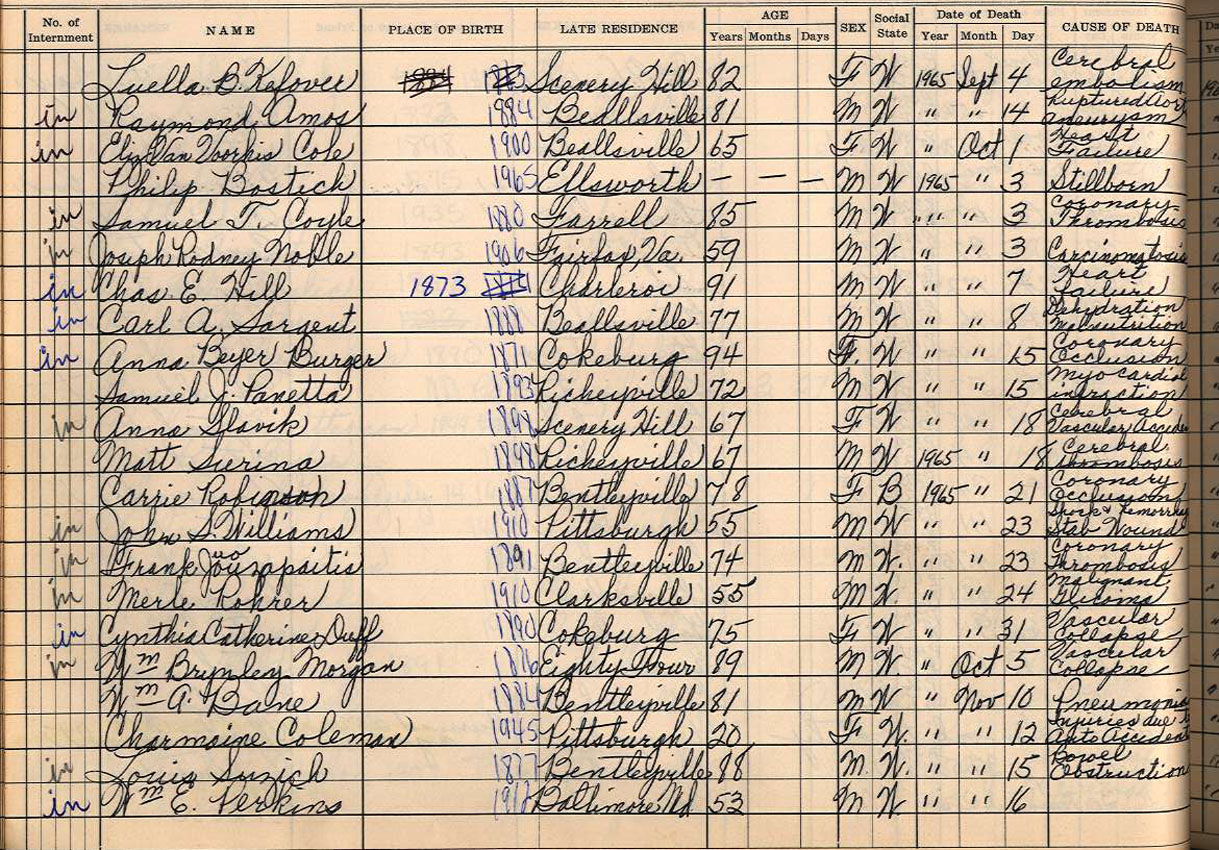 No. of Internment NAME PLACE OF BIRTH LATE RESIDENCE AGE Years Months Days SEX Social State Date of Death Year Month Day CAUSE OF DEATH
Luella B. Kefover Scenery Hill 82 F W 1965 Sept 4 Cerebral embolism
in Raymond Amos 1884 Beallsville 81 M W " " 14 Ruptured Aort aneurysm
in Eliz Van Voorhis Cole 1900 Beallsville 65 F W " Oct 1 Heart Failure
Philip Bostich 1965 Ellsworth — — — M W 1965 " 3 Stillborn
in Samuel T. Coyle 1880 Farrell 85 M W " " 3 Coronary Thrombosis
in Joseph Rodney Noble 1906 Fairfax, Va. 59 M W " " 3 Carcinomatosis
in Chas. E. Hill 1873 Charleroi 91 M W " " 7 Heart Failure
in Carl A. Sargent 1888 Beallsville 77 M W " " 8 Dehydration Malnutrition
in Anna Beyer Burger 1871 Cokeburg 94 F. W " " 15 Coronary Occlusion
Samuel J. Panetta 1893 Richeyville 72 M W " " 15 Myocardial infraction
in Anna Slavik 1898 Scenery Hill 67 F W " " 18 Cerebral Vascular Accide
Matt Surina 1898 Richeyville 67 M W 1965 " 18 Cerebral thrombosis
Carrie Robinson 1887 Bentleyville 78 F B 1965 " 21 Coronary Occlusion
in John S. Williams 1910 Pittsburgh 55 M W " " 23 Shock & Hemorrhag Stab Wound
in Frank 1891 Bentleyville 74 M W. " " 23 Coronary Thrombosis
in Merle Rohrer 1910 Clarksville 55 M W. " " 24 Malignant Glioma
in Cynthia Catherine Duff 1890 Cokeburg 75 F W " " 31 Vascular Collapse
in Wm Brynley Morgan 1876 Eighty Four 89 M W. " Oct 5 Vascular Collapse
Wm A. Bane 1884 Bentleyville 81 M W " Nov 10 Pneumonia
Charmaine Coleman 1945 Pittsburgh 20 F W. " " 12 Injuries due Auto Acciden
in Louis Suzich 1877 Bentleyville 88 M. W. " " 15 Bowel Obstruction
in Wm E. Perkins 1912 Baltimore Md. 53 M W " " 16